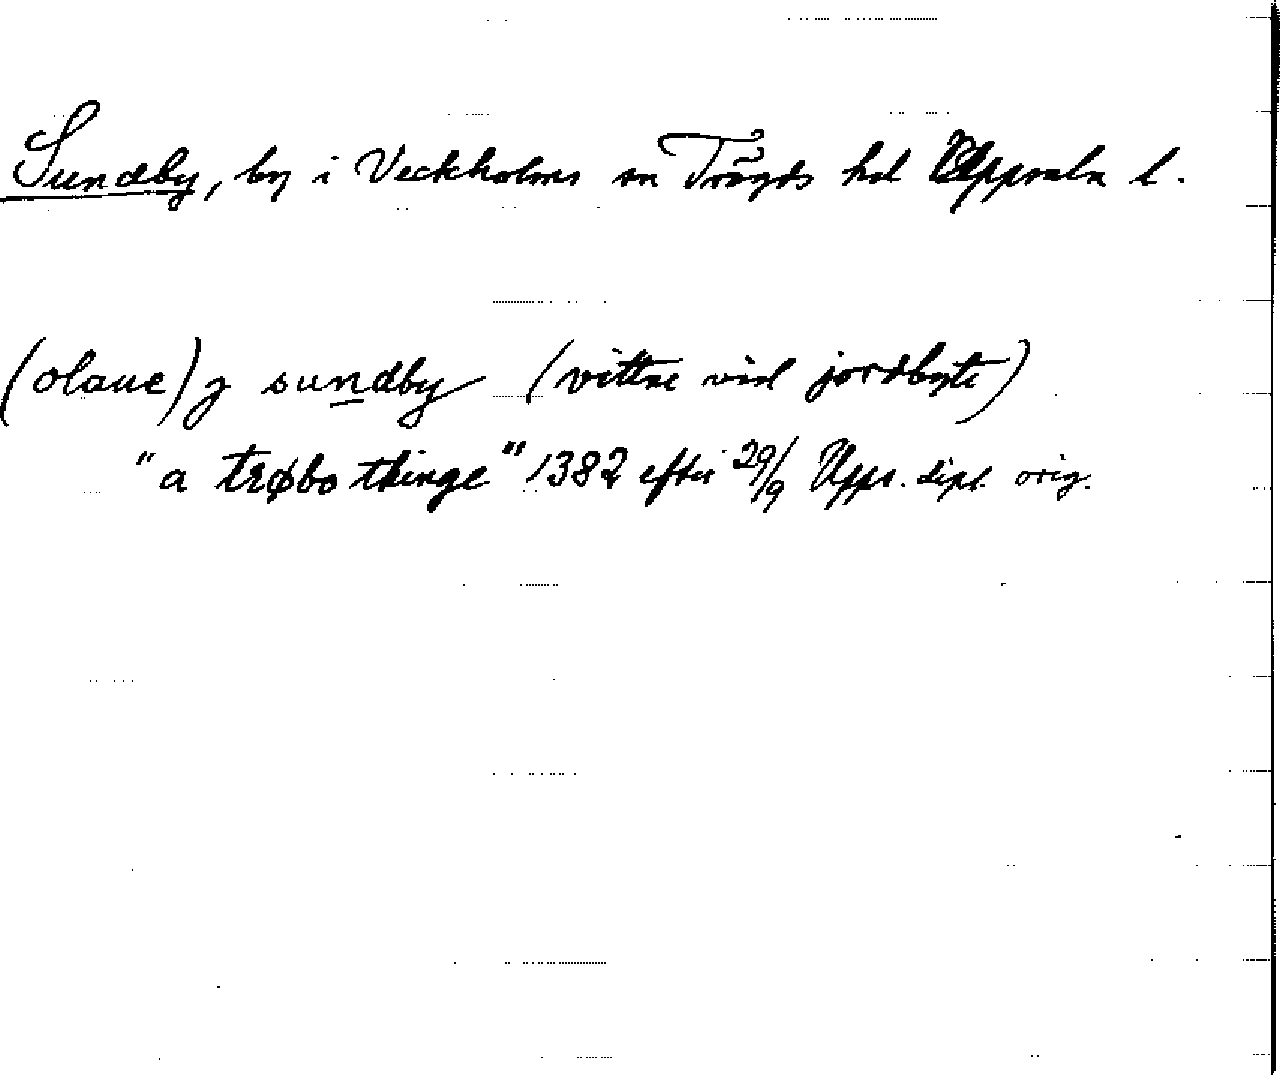 Sundby, by i Veckholms sn Trögds hd Uppsala l.
(olaue) j sundby (vittne vid jordbyte)
"a trøbo thinge" 1382 efter 29/9 Upps. dipl. orig.